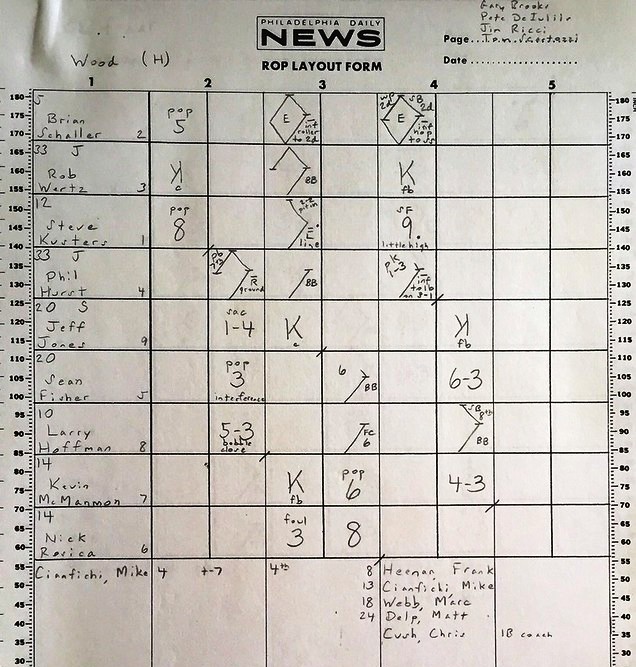 Gary Brooks
Pete DeIuliis
Jim Ricci
PHILADELPHIA DAILY
NEWS
ROP LAYOUT FORM
Page
Date
Wood (H)
1 2 3 4 5
5
Brian
Schaller 2
pop
5
E
inf
roller
to 2d
wp
2d
SB
2d
E
inf
hop
to ss
33 J
Rob
Wertz 3
K
c
BB
K
fb
12
Steve
Kusters 1
pop
8
line
SF
9
little high
33 J
Phil
Hurst 4
ground
BB
1-3
inf
to 1b
on 3-1
20 S
Jeff
Jones 9
sac
1-4
K
c
K
fb
20
Sean
Fisher 5
pop
3
interference
6
BB
6-3
10
Larry
Hoffman 8
5-3
bobble
close
FC
6
SB
8th
BB
14
Kevin
McManmon 7
K
fb
pop
6
4-3
14
Nick
Rosica 6
foul
3
8
Cianfichi, Mike 4 4th
8 Heenan, Frank
13 Cianfichi, Mike
18 Webb, Marc
24 Delp, Matt
Cush, Chris 1B coach
180
175
170
165
160
155
150
145
140
135
130
125
120
115
110
105
100
95
90
85
80
75
70
65
60
55
50
45
40
35
30